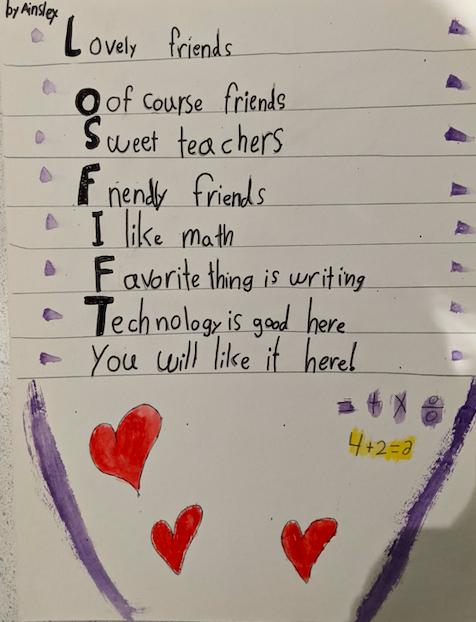 by Ainslex
Lovely friends
O of course friends
Sweet teachers
Friendly friends
I like math
Favorite thing is writing
Technology is good here
You will like it here!
= + X ÷
4+2=2